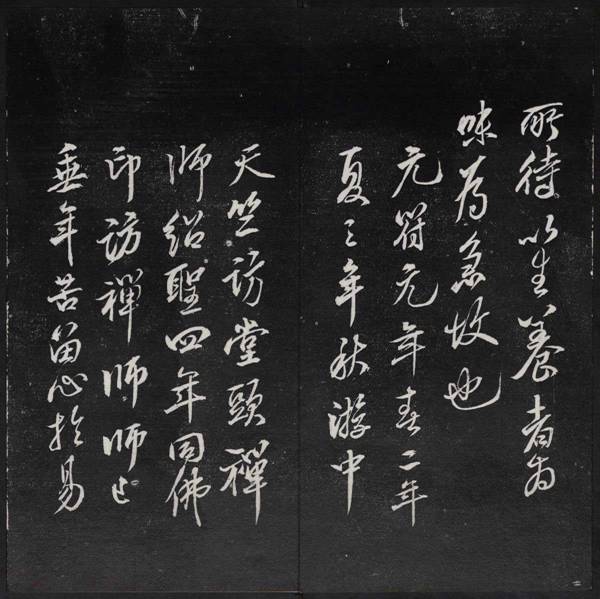 所待以生養者為
味為急故也
元符元年春二年
夏三年秋游中
天竺訪堂頭禪
師紹聖四年同佛
印訪禪師師已
垂年苦留心於易